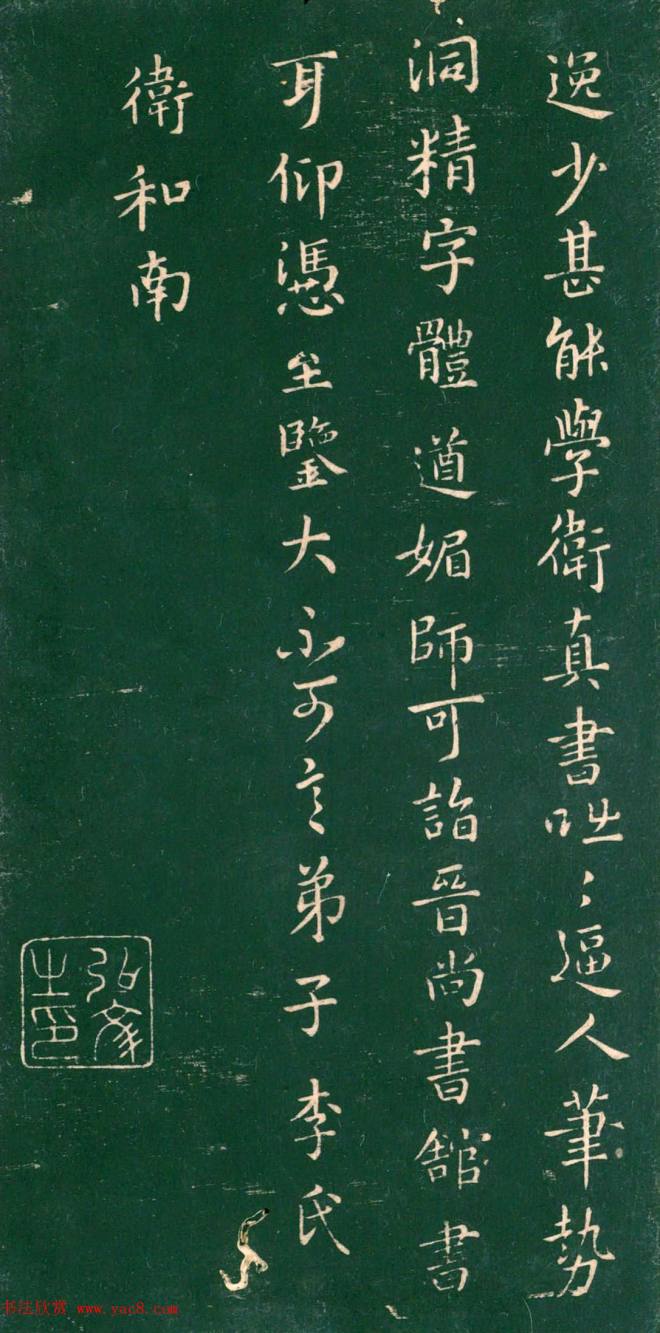 逸少甚能學衛真書咄〻逼人筆勢
洞精字體遒媚師可詣晉尚書館書
耳仰憑至鑒大不可言弟子李氏
衛和南
之印
书法欣赏 www.yac8.com